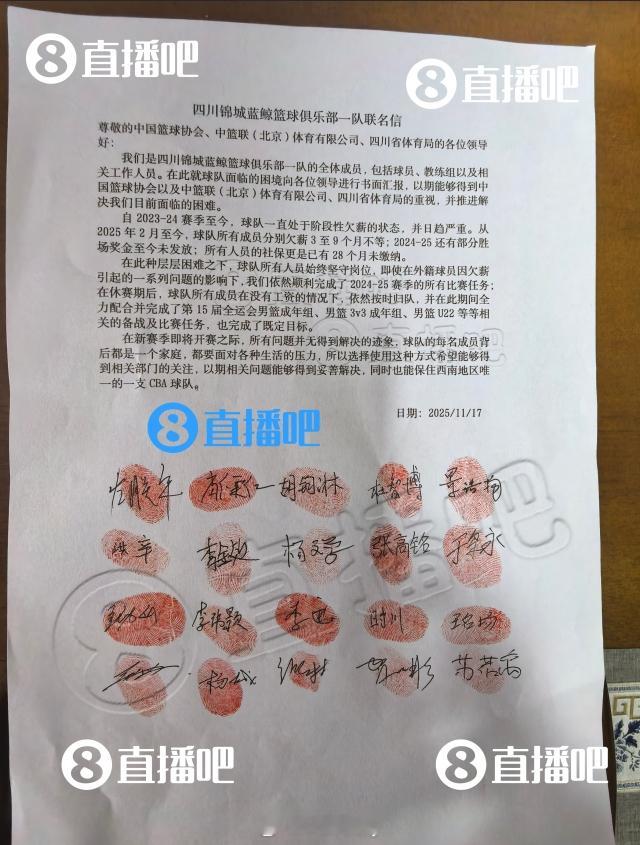 8直播吧
8直播吧
四川锦城蓝鲸篮球俱乐部一队联名信
尊敬的中国篮球协会、中篮联（北京）体育有限公司、四川省体育局的各位领导
好：
我们是四川锦城蓝鲸篮球俱乐部一队的全体成员，包括球员、教练组以及相
关工作人员。在此就球队面临的困境向各位领导进行书面汇报，以期能够得到中
国篮球协会以及中篮联（北京）体育有限公司、四川省体育局的重视，并推进解
决我们目前面临的困难。
自 2023-24 赛季至今，球队一直处于阶段性欠薪的状态，并日趋严重。从
2025 年 2 月至今，球队所有成员分别欠薪 3 至 9 个月不等；2024-25 还有部分胜
场奖金至今未发放；所有人员的社保更是已有 28 个月未缴纳。
在此种层层困难之下，球队所有人员始终坚守岗位，即使在外籍球员因欠薪
引起的一系列问题的影响下，我们依然顺利完成了 2024-25 赛季的所有比赛任务；
在休赛期后，球队所有成员在没有工资的情况下，依然按时归队，并在此期间全
力配合并完成了第 15 届全运会男篮成年组、男篮 3v3 成年组、男篮 U22 等等相
关的备战及比赛任务，也完成了既定目标。
在新赛季即将开赛之际，所有问题并无得到解决的迹象，球队的每名成员背
后都是一个家庭，都要面对各种生活的压力，所以选择使用这种方式希望能够得
到相关部门的关注，以期相关问题能够得到妥善解决，同时也能保住西南地区唯
一的一支 CBA 球队。
8直播吧
日期：2025/11/17
杜智博 景浩杨
张高铭
李张颖 李迅 时川
8直播吧
8直播吧
8直播吧